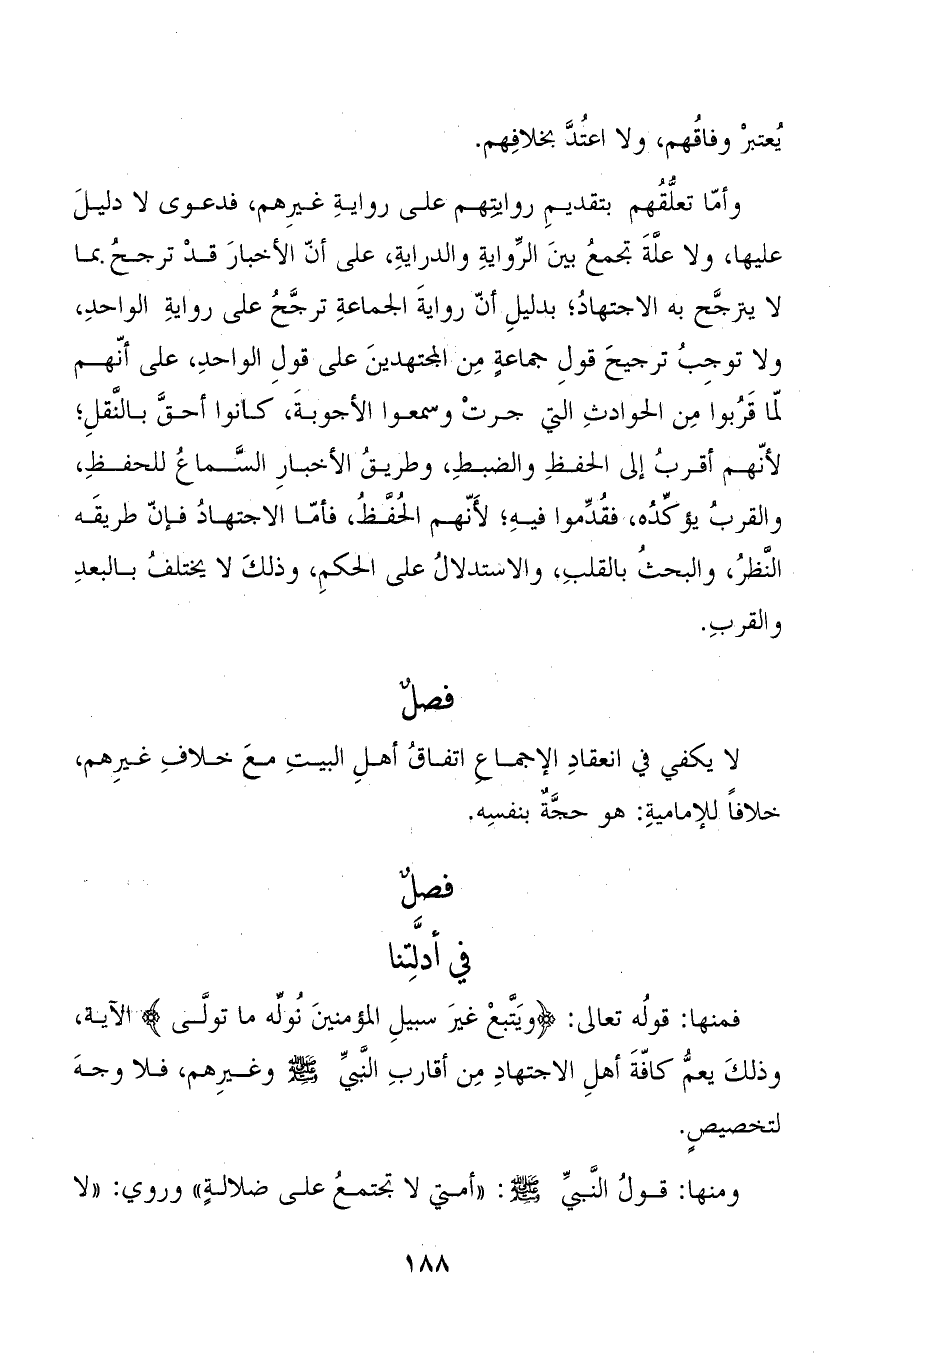 يُعتبرْ وفاقُهم، ولا اعتُدَّ بخلافِهم.
وأمّا تعلُّقُهم بتقديمِ روايتِهم على روايةِ غيرِهم، فدعوى لا دليلَ
عليها، ولا علَّةَ تجمعُ بينَ الرِّوايةِ والدرايةِ، على أنّ الأخبارَ قدْ ترجحُ بما
لا يترجَّح به الاجتهادُ؛ بدليلِ أنّ روايةَ الجماعةِ ترجَّحُ على روايةِ الواحدِ،
ولا توجبُ ترجيحَ قولِ جماعةٍ مِن المجتهدينَ على قولِ الواحدِ، على أنّهم
لمّا قَرُبوا مِن الحوادثِ التي جرتْ وسمعوا الأجوبةَ، كانوا أحقَّ بالنَّقلِ؛
لأنّهم أقربُ إلى الحفظِ والضبطِ، وطريقُ الأخبارِ السَّماعُ للحفظِ،
والقربُ يؤكِّدُه، فقُدِّموا فيهِ؛ لأَنّهم الحُفَّظُ، فأمّا الاجتهادُ فإنّ طريقَه
النَّظرُ، والبحثُ بالقلبِ، والاستدلالُ على الحكمِ، وذلكَ لا يختلفُ بالبعدِ
والقربِ.
فصلٌ
لا يكفي في انعقادِ الإجماعِ اتفاقُ أهلِ البيتِ معَ خلافِ غيرِهم،
خلافاً للإماميةِ: هو حجَّةٌ بنفسِه.
فصلٌ
في أدلَّتِنا
فمنها: قولُه تعالى: ﴿ويَتَّبعْ غيرَ سبيلِ المؤمنينَ نُولِّه ما تولَّى﴾ الآية،
وذلكَ يعمُّ كافّةَ أهلِ الاجتهادِ مِن أقاربِ النَّبيِّ ﷺ وغيرِهم، فلا وجهَ
لتخصيصٍ.
ومنها: قولُ النَّبيِّ ﷺ: «أمتي لا تجتمعُ على ضلالةٍ» وروي: «لا
١٨٨